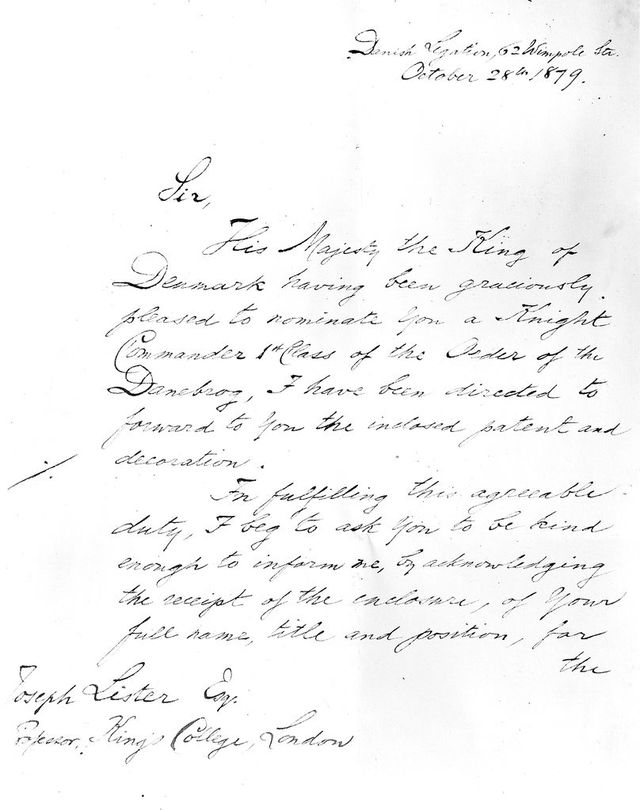 Danish Legation, 62 Wimpole Str.
October 28th 1879.
Sir,
His Majesty the King of
Denmark having been graciously
pleased to nominate You a Knight
Commander 1st Class of the Order of the
Danebrog, I have been directed to
forward to You the inclosed patent and
decoration.
In fulfilling this agreeable
duty, I beg to ask You to be kind
enough to inform me, by acknowledging
the receipt of the enclosure, of Your
full name, title and position, for
the
Joseph Lister Esq.
Professor, Kings College, London